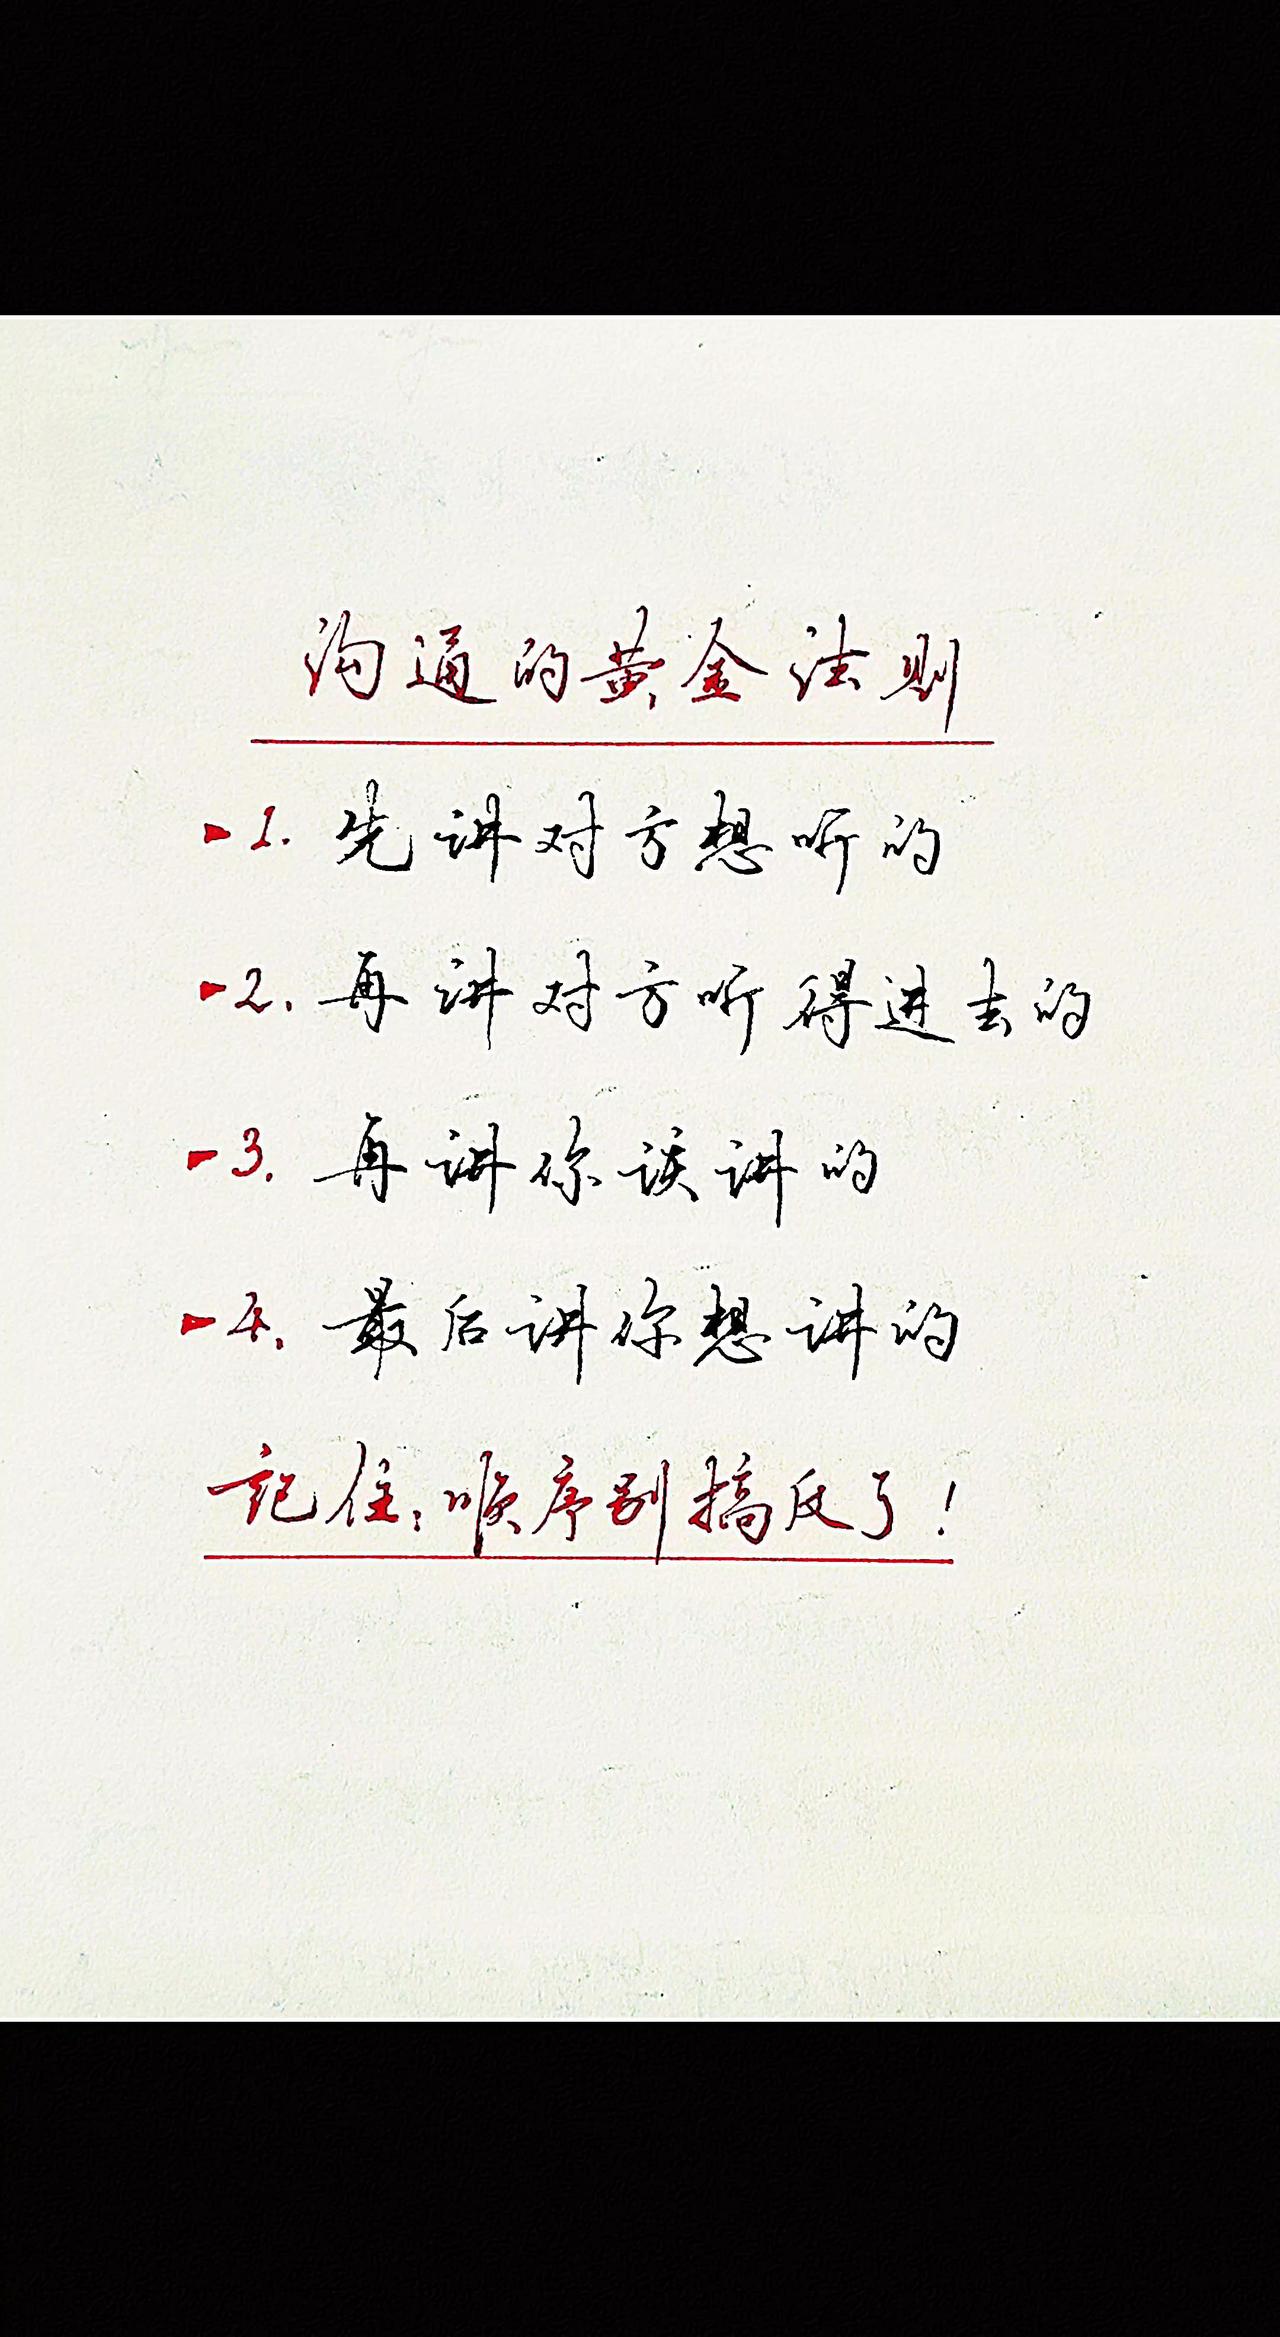 沟通的黄金法则
1. 先讲对方想听的
2. 再讲对方听得进去的
3. 再讲你该讲的
4. 最后讲你想讲的
记住：顺序别搞反了！